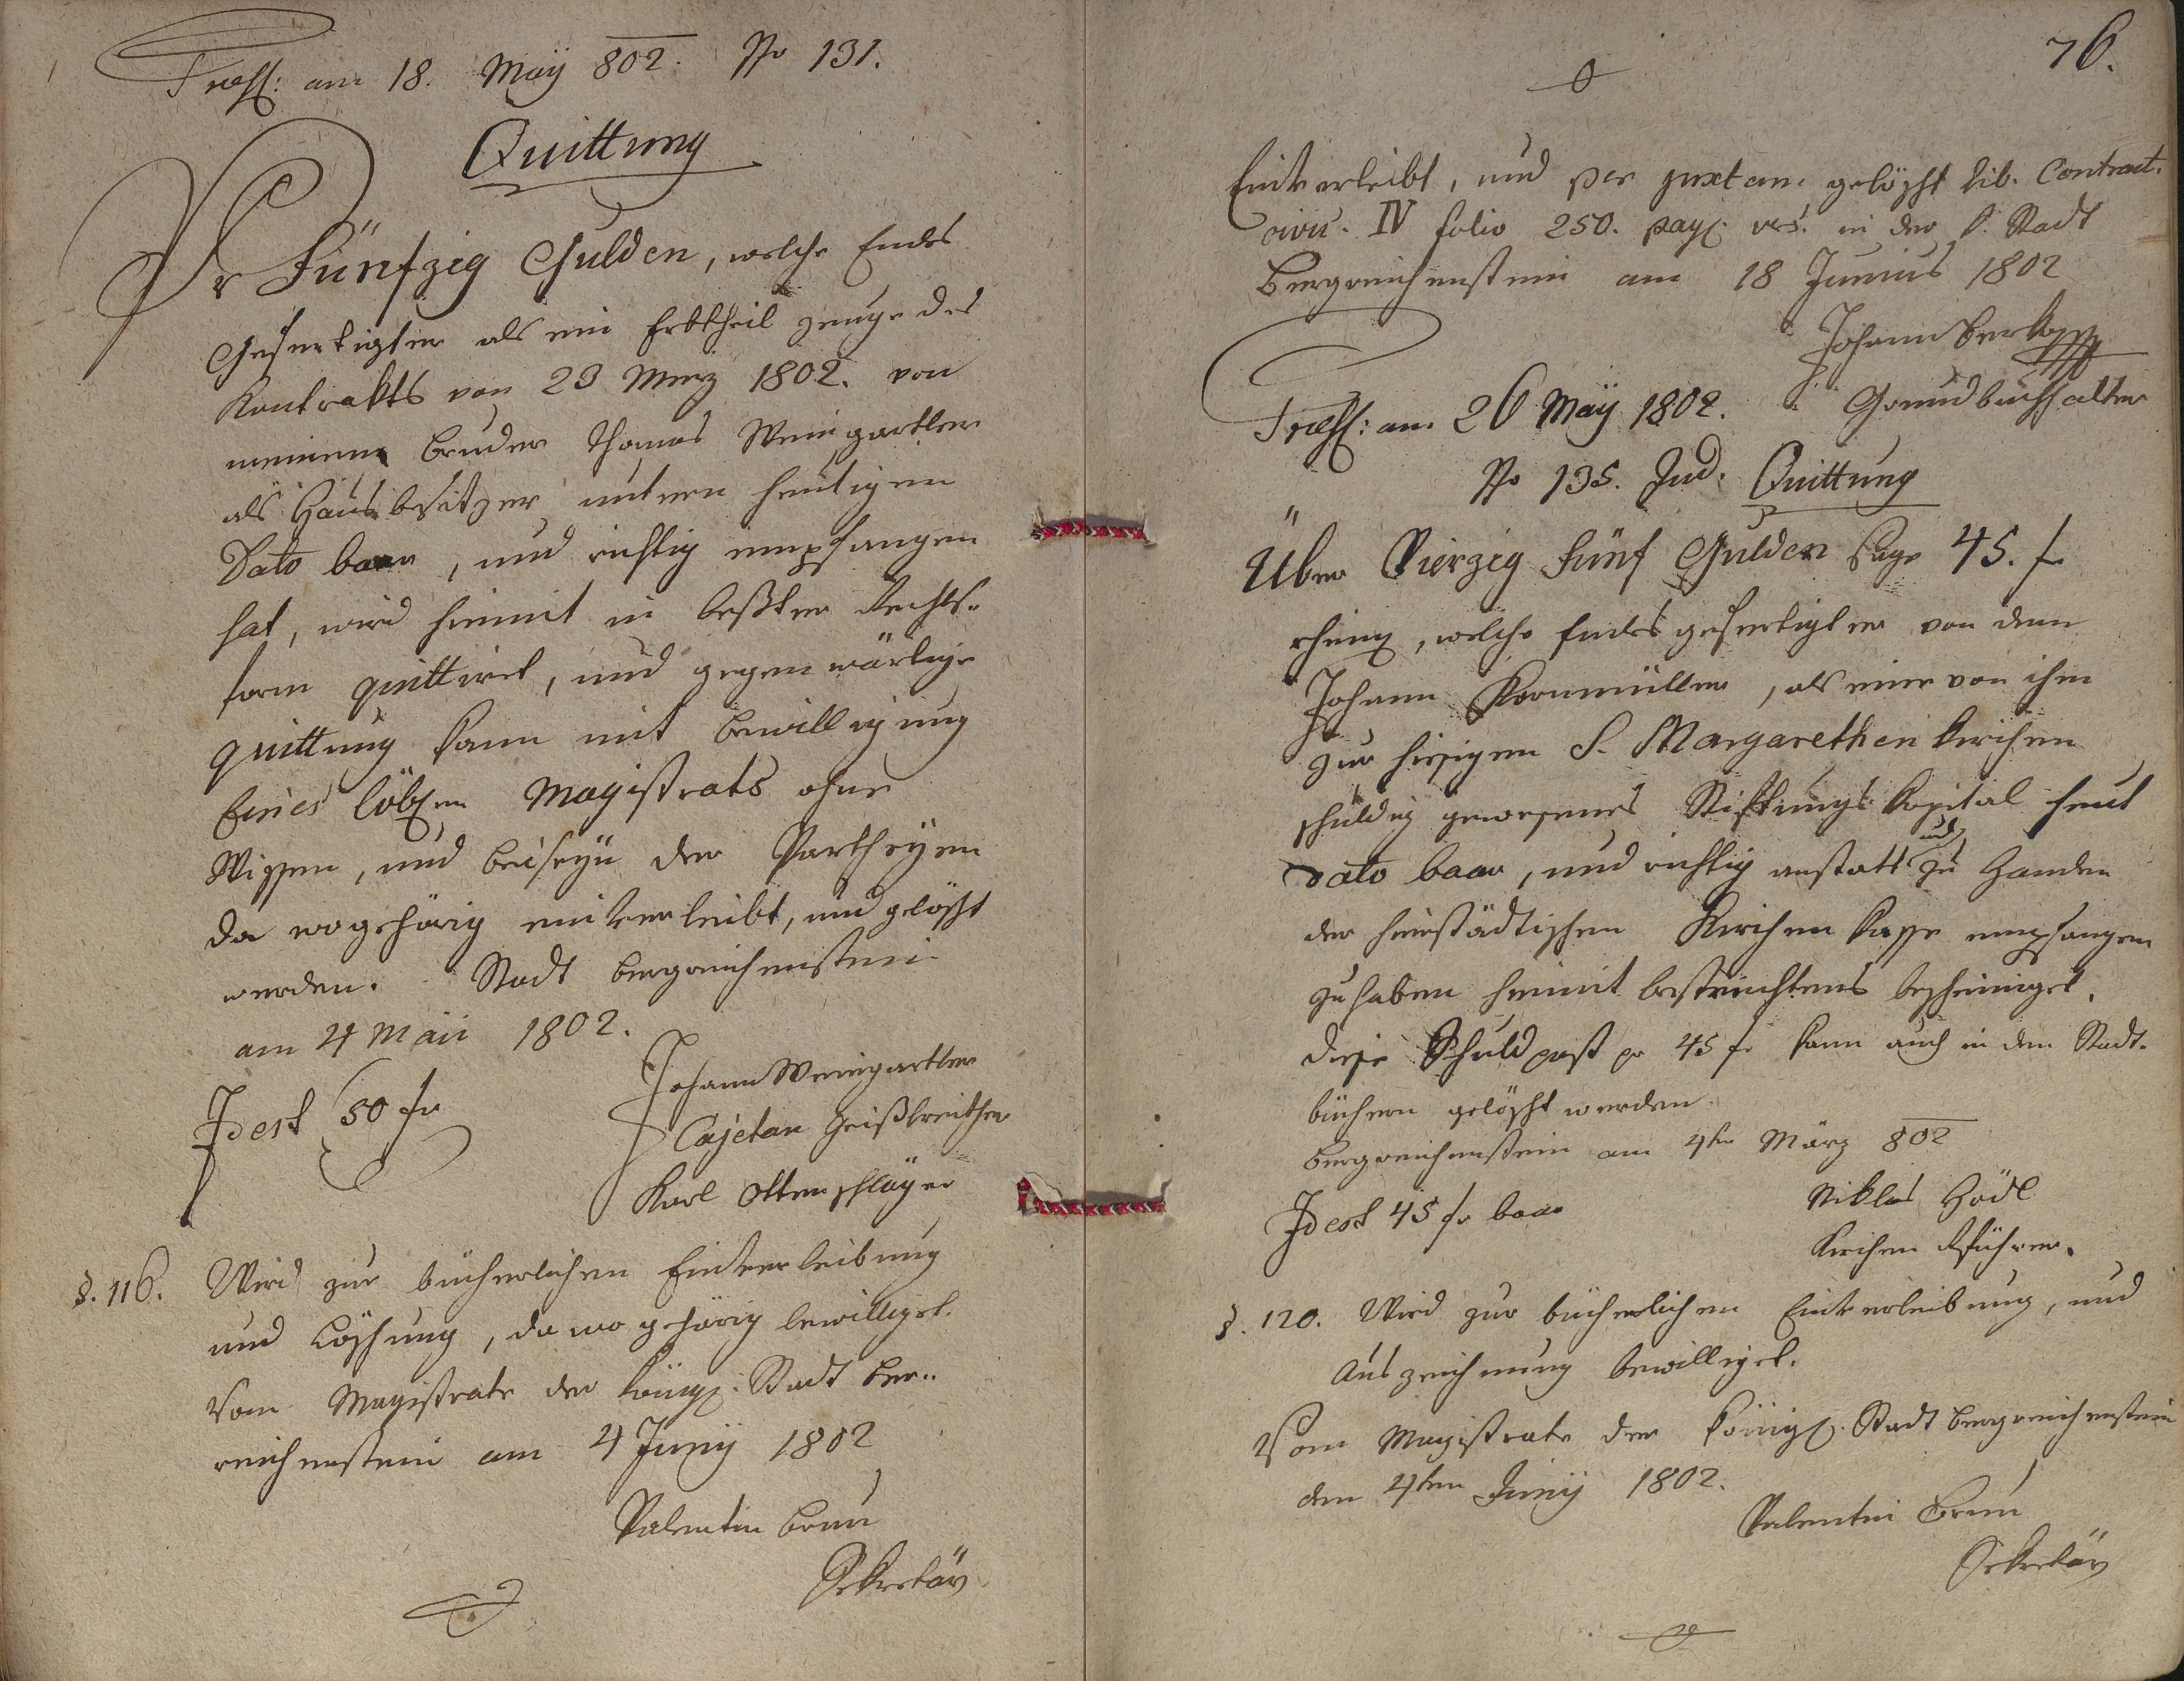 Præs: am 18. Maÿ 802. No 131.
Quittung
Pr Fünfzig Gulden, welche Endes
Gefertigter als ein Erbtheil zeuge des
Kontrakts von 23 Merz 1802. von
meinem bruder Thomas Weingartler
als Hausbesitzer untern heutigen
Dato baar, und richtig empfangen
hat, wird hiemit in bester Rechts-
form quittiret, und gegenwärtige
quittung kann mit bewilligung
Eines löben Magistrats ohne
Wissen, und beiseyn der Partheyen
da wo gehörig einverleibt, und gelöscht
werden. Stadt bergreichenstein
am 4 Maii 1802.
Idest 50 fr
Johann Weingartler
Cajetan Geißbreither
Karl Ottenschläger
§. 116. Wird zur bücherlichen Einverleibung
und Löschung, da wo gehörig bewilliget.
Vom Magistrate der königl. Stadt Ber..
reichenstein am 4 Junÿ 1802
Valentin Brun
Sekretär
76.
Einverleibt, und per juxtam gelöscht lib. Contract.
civii. IV folio 250. pag. vers. in der k. Stadt
Bergreichenstein am 18 Junius 1802
Johann Berkopff
Grundbuchhalter
Præs: am 26 Maÿ 1802.
No 135. Jud. Quittung
Über Vierzig Fünf Gulden sage 45. f
rheinl, welche Endes gefertigter von dem
Johann Kornmüller, als eine von ihm
zur hiesigen S. Margarethen kirchen
schuldig gewesenes Stiftungs kapital heut
Dato baar, und richtig anstatt und zu Handen
der hierstädtischen Kirchen kasse empfangen
zu haben hiemit bestreichtens bescheiniget.
diese Schuldpost pr 45 f kann auch in den Stadt-
büchern gelöscht werden.
bergreichenstein am 4ten März 802
Idest 45 fr baar
Niklas Hödl
Kirchen Rführer.
§. 120. Wird zur bücherlichen Einverleibung, und
Auszeichnung bewilliget.
Vom Magistrate der königl. Stadt bergreichenstein
den 4ten Junÿ 1802.
Valentin Brun
Sekretär